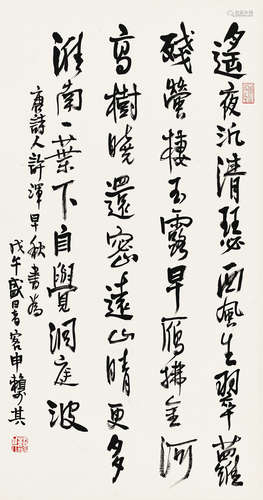 遙夜汎清瑟西風生翠蘿
殘螢棲玉露早雁拂金河
高樹曉還密遠山晴更多
淮南一葉下自覺洞庭波
唐詩人許渾早秋書為
戊午盛暑客申賴少其